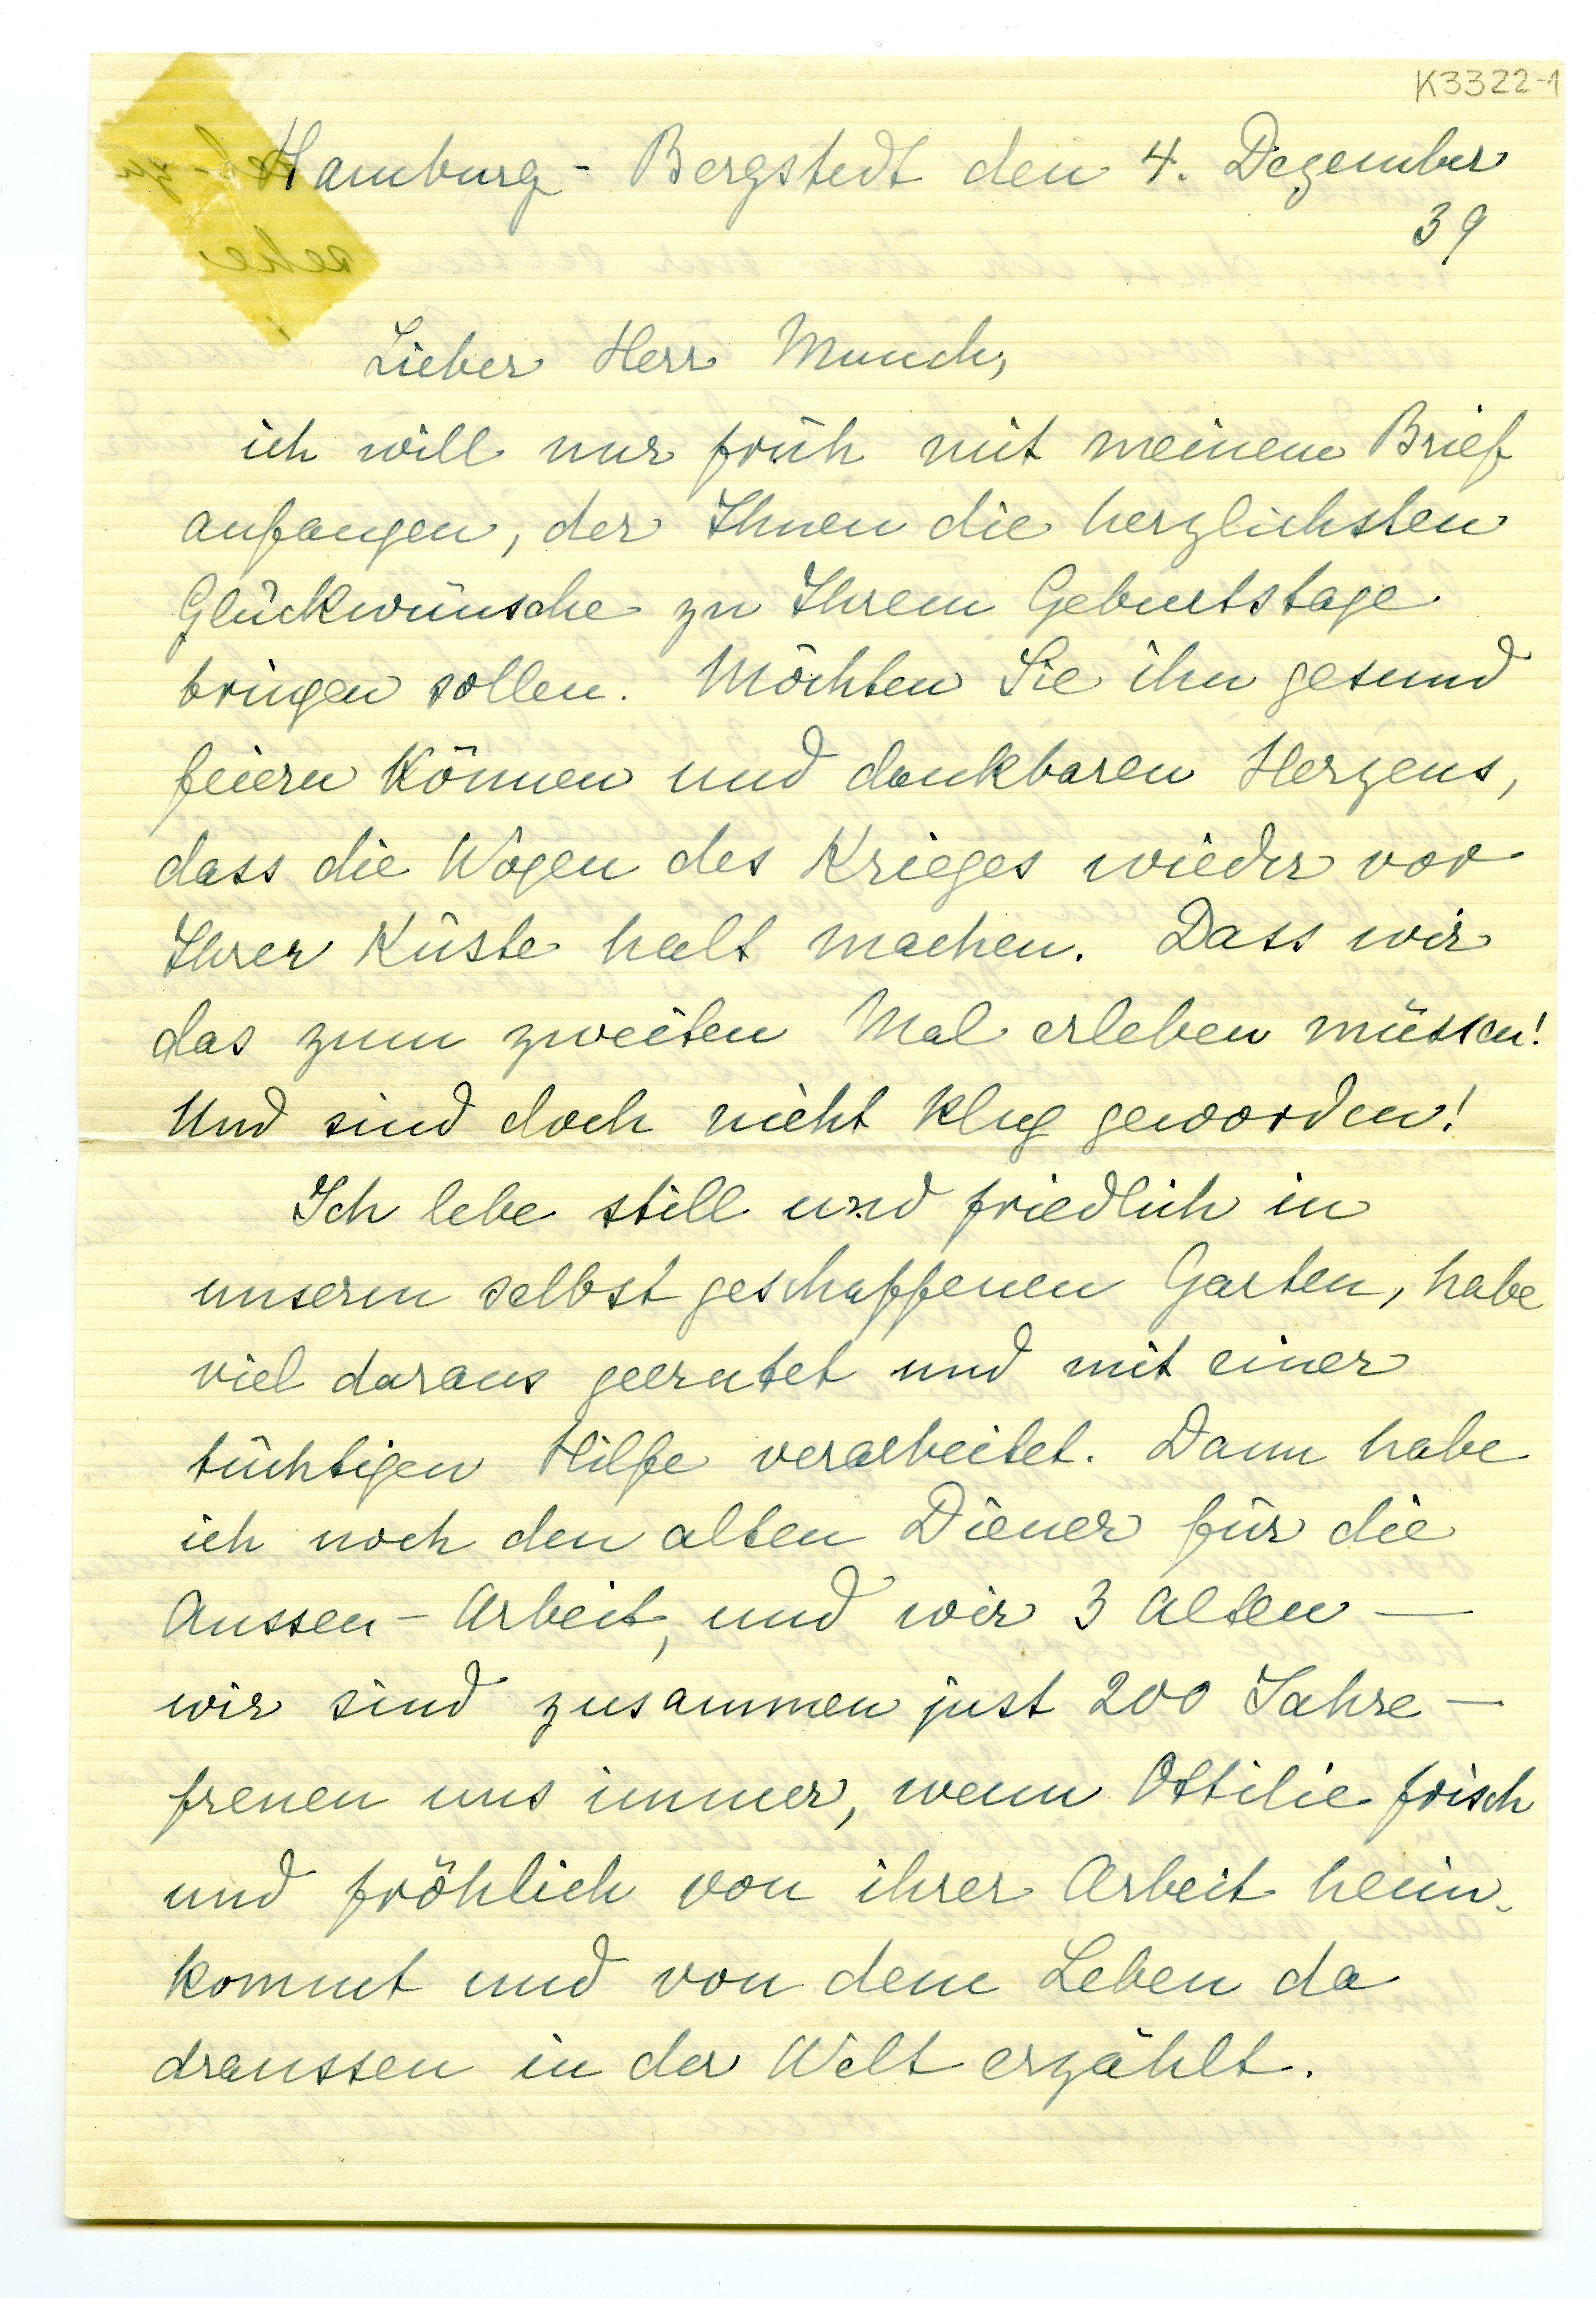 K3322-1
Hamburg - Bergstedt den 4. Dezember
39
Lieber Herr Munch,
ich will nur früh mit meinem Brief
anfangen, der Ihnen die herzlichsten
Glückwünsche zu Ihrem Geburtstage
bringen sollen. Möchten Sie ihn gesund
feiern können und dankbaren Herzens,
dass die Wogen des Krieges wieder vor
Ihrer Küste halt machen. Dass wir
das zum zweiten Mal erleben müssen!
Und sind doch nicht klug geworden!
Ich lebe still und friedlich in
unserm selbst geschaffenen Garten, habe
viel daraus geerntet und mit einer
tüchtigen Hilfe verarbeitet. Dann habe
ich noch den alten Diener für die
Aussen - Arbeit, und wir 3 Alten —
wir sind zusammen just 200 Jahre —
freuen uns immer, wenn Ottilie frisch
und fröhlich von ihrer Arbeit heim-
kommt und von dem Leben da
draussen in der Welt erzählt.